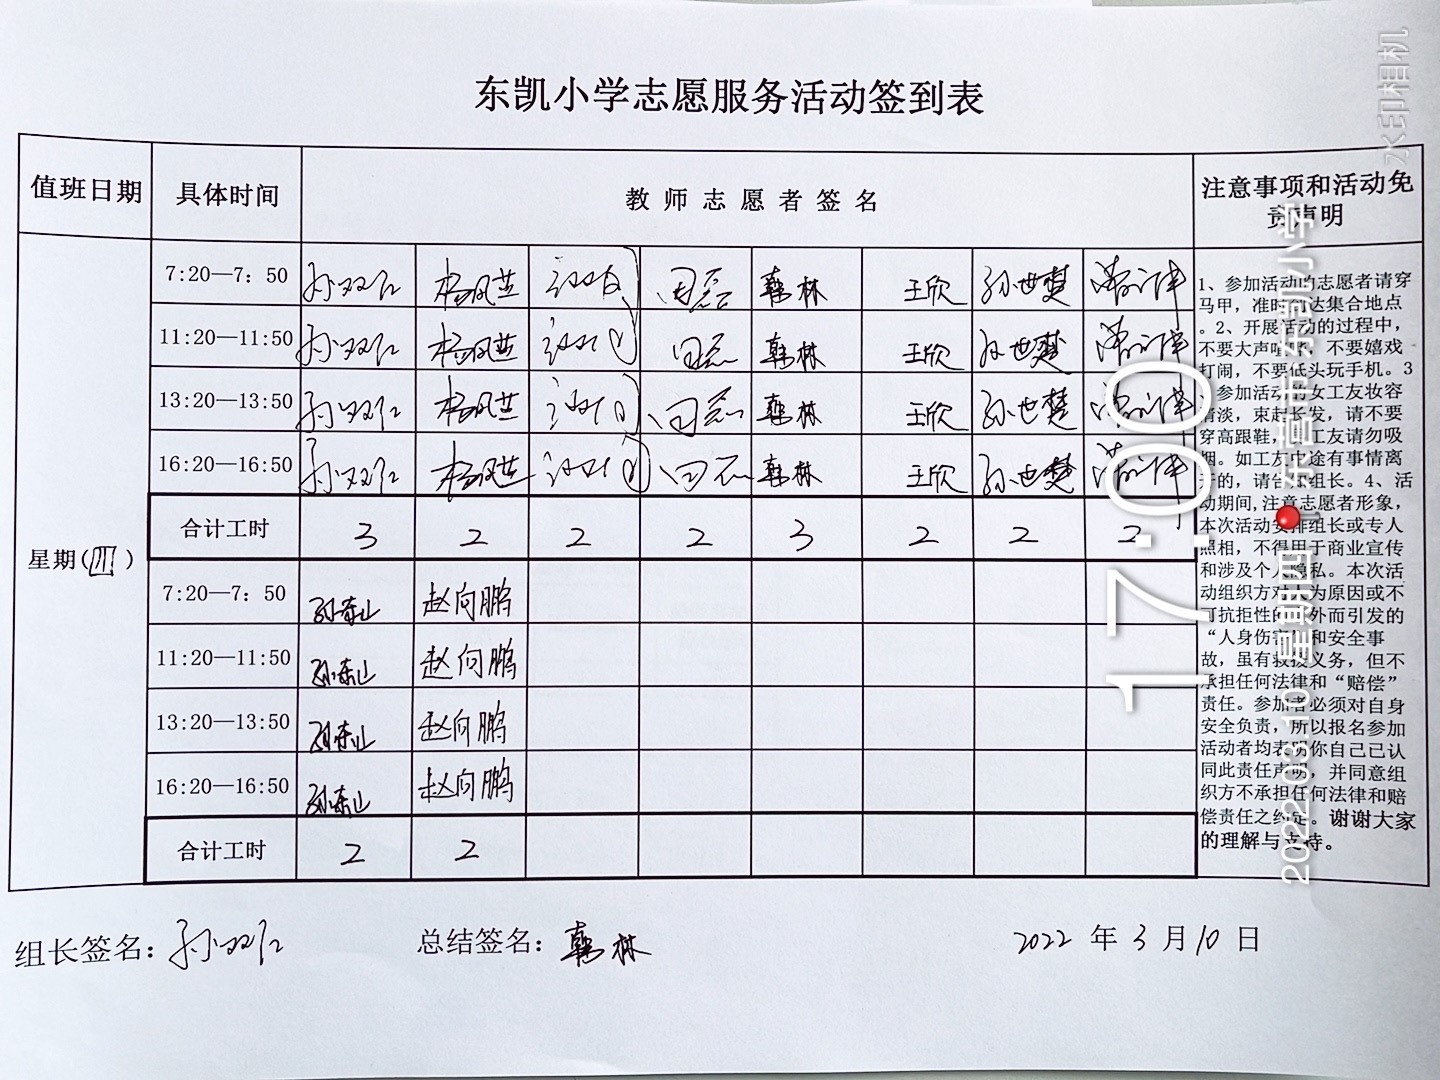 东凯小学志愿服务活动签到表
值班日期 具体时间 教师志愿者签名 注意事项和活动免
责声明
7:20—7：50 韩林 王欣 孙世慧
11:20—11:50 韩林 王欣 孙世慧
13:20—13:50 韩林 王欣 孙世慧
16:20—16:50 韩林 王欣 孙世慧
合计工时 3 2 2 2 3 2 2 2
星期(四)
7:20—7：50 赵向鹏
11:20—11:50 赵向鹏
13:20—13:50 赵向鹏
16:20—16:50 赵向鹏
合计工时 2 2
1、参加活动的志愿者请穿
马甲，准时到达集合地点
。2、开展活动的过程中，
不要大声喧哗，不要嬉戏
打闹，不要低头玩手机。3
、参加活动的女工友妆容
清淡，束起长发，请不要
穿高跟鞋，男工友请勿吸
烟。如工友中途有事情离
开的，请告知组长。4、活
动期间,注意志愿者形象，
本次活动安排组长或专人
照相，不得用于商业宣传
和涉及个人隐私。本次活
动组织方对人为原因或不
可抗拒性的意外而引发的
“人身伤害”和安全事
故，虽有救援义务，但不
承担任何法律和“赔偿”
责任。参加者必须对自身
安全负责，所以报名参加
活动者均表明你自己已认
同此责任声明，并同意组
织方不承担任何法律和赔
偿责任之约定。谢谢大家
的理解与支持。
组长签名： 总结签名：韩林 2022 年 3 月 10 日
水印相机
17:00
2022.03.10 星期四 东营市·东凯小学